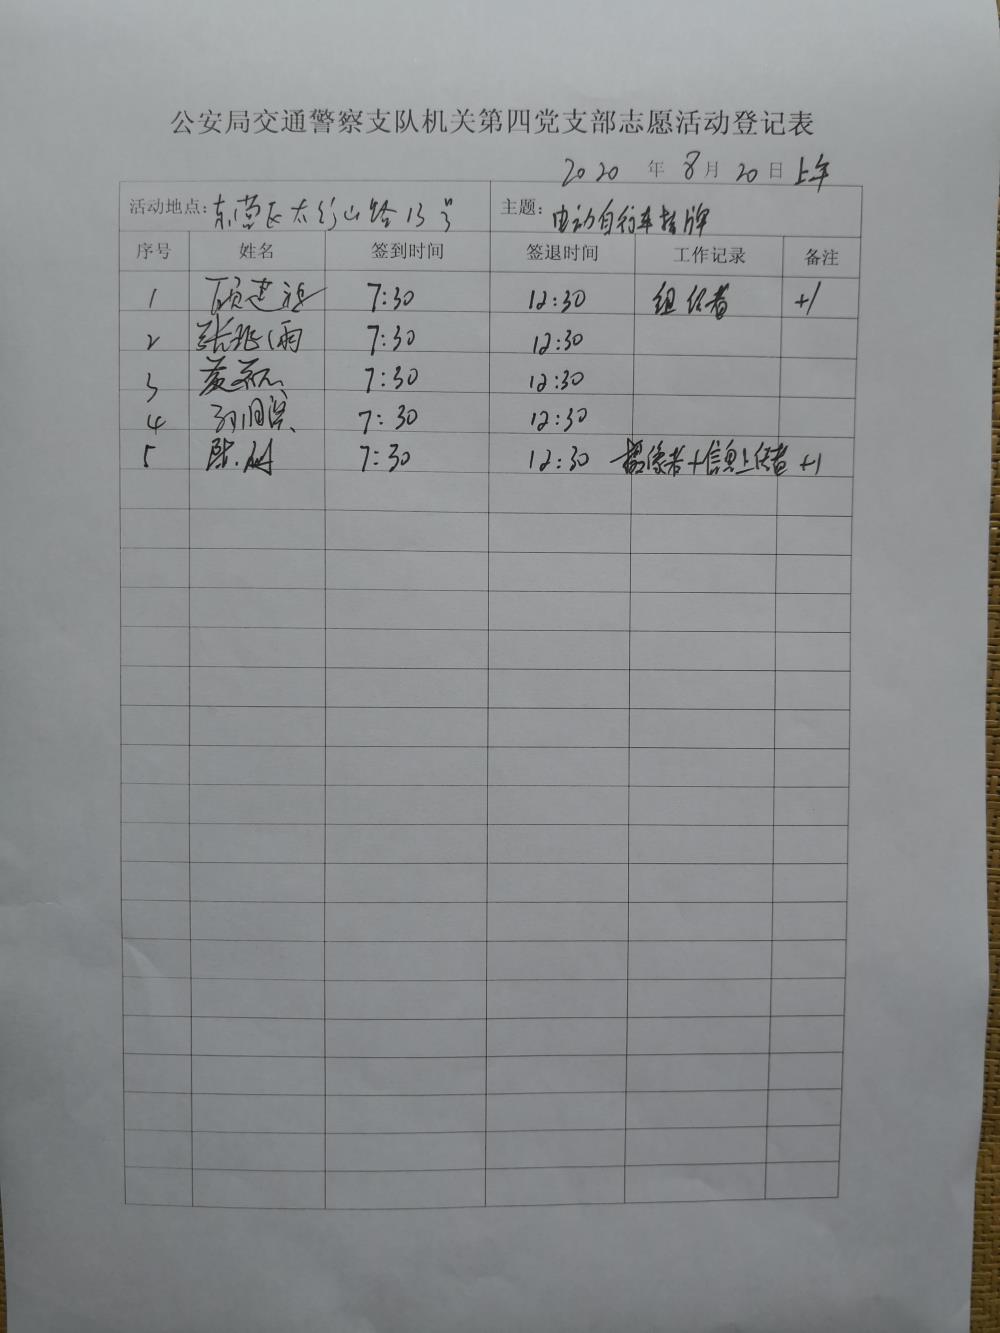 公安局交通警察支队机关第四党支部志愿活动登记表
2020 年 8 月 20 日 上午
活动地点: 东营区太行山路13号 主题: 电动自行车挂牌
序号 姓名 签到时间 签退时间 工作记录 备注
1 顾建 7:30 12:30 组织者 +1
2 张 雨 7:30 12:30
3 7:30 12:30
4 7:30 12:30
5 陈 7:30 12:30 摄像者+信息上传者 +1